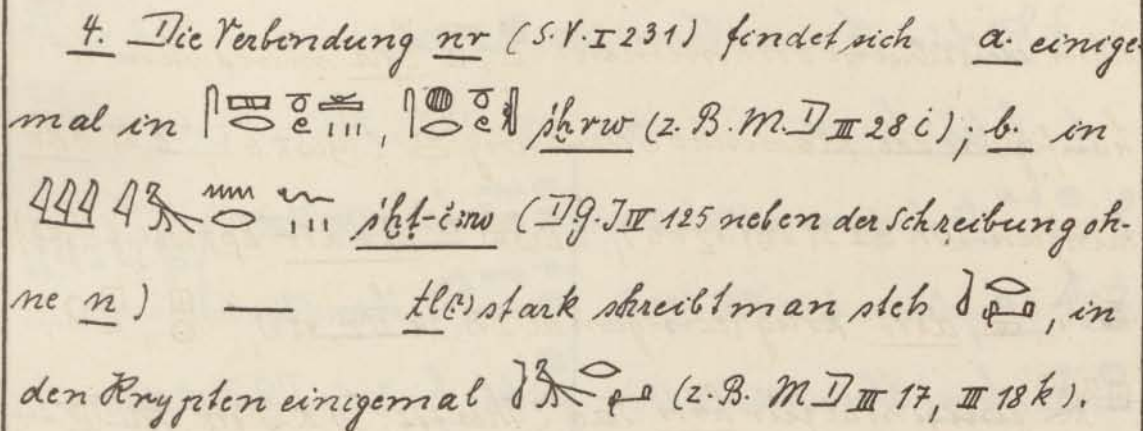 4. Die Verbindung nr (S.V.I 231) findet sich a. einige-
mal in , sḫrw (z. B. M.D III 28 i); b. in
sḫt-imw (D.G.I IV 125 neben der Schreibung oh-
ne n) — tl(?) stark schreibt man stets , in
den Krypten einigemal (z. B. M D III 17, III 18 k).